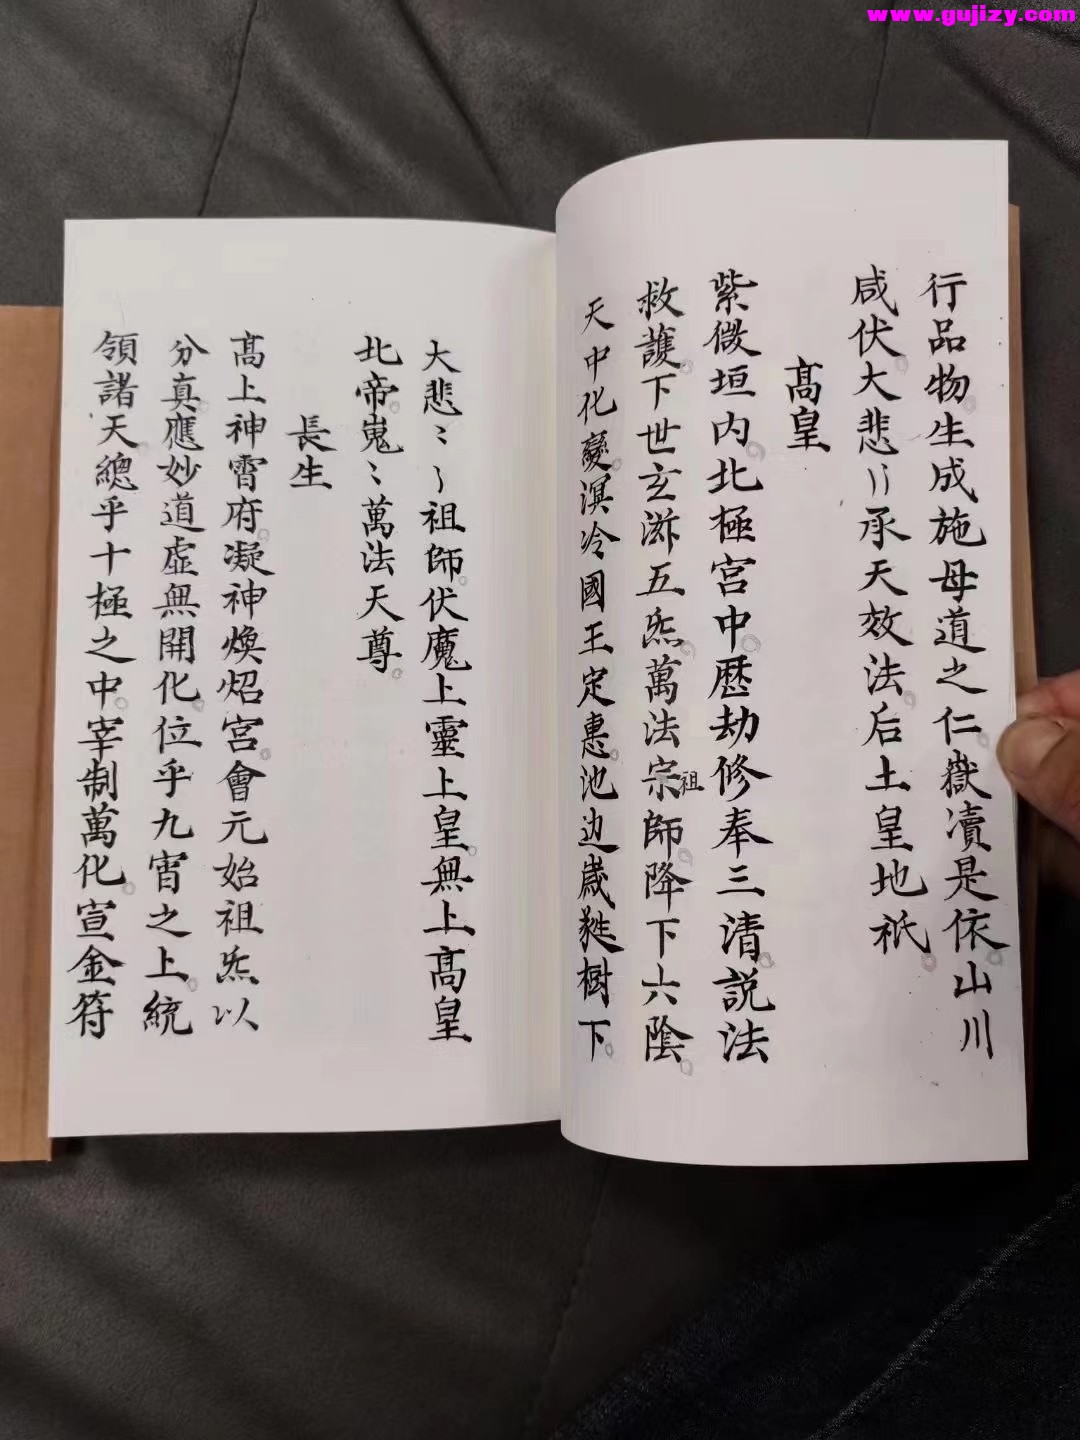 www.gujizy.com
行品物生成施母道之仁嶽瀆是依山川
咸伏大悲〃承天效法后土皇地祇
髙皇
紫微垣内北極宮中歷劫修奉三清説法
救護下世玄滋五炁萬法宗師降下六陰
祖
天中化變溟泠國王定惠池边嵗毵樹下
大悲〻〻祖師伏魔上靈上皇無上髙皇
北帝嵬〻萬法天尊
長生
髙上神霄府凝神煥炤宮會元始祖炁以
分真應妙道虛無開化位乎九霄之上統
領諸天總乎十極之中宰制萬化宣金符